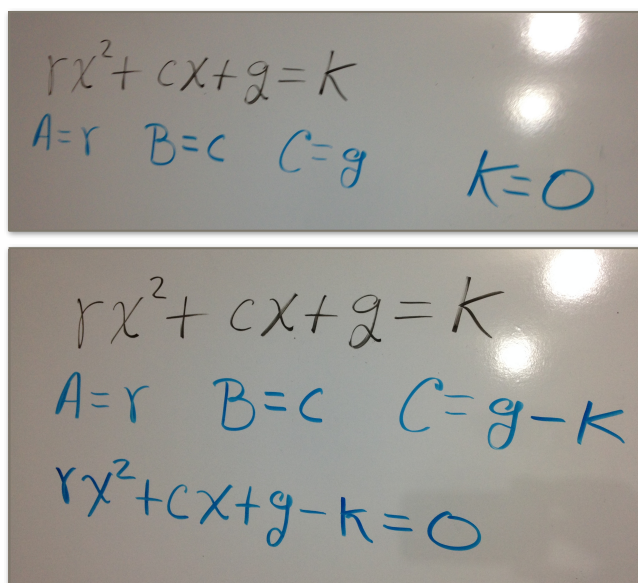 rx²+cx+g=k
A=r B=c C=g K=0
rx²+cx+g=k
A=r B=c C=g-k
rx²+cx+g-k=0